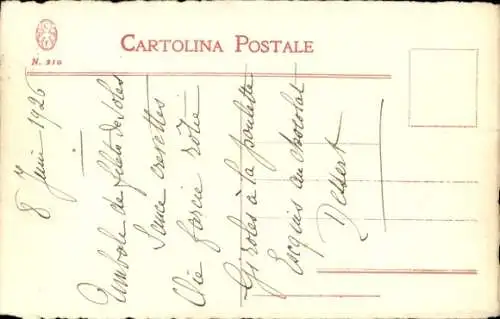 CARTOLINA POSTALE
N. 210
8 Juin 1926
Timbale de filets de Soles
Sauce crevettes
Oie farcie rôtie
Giroles à la poulette
Esquis au chocolat
Dessert